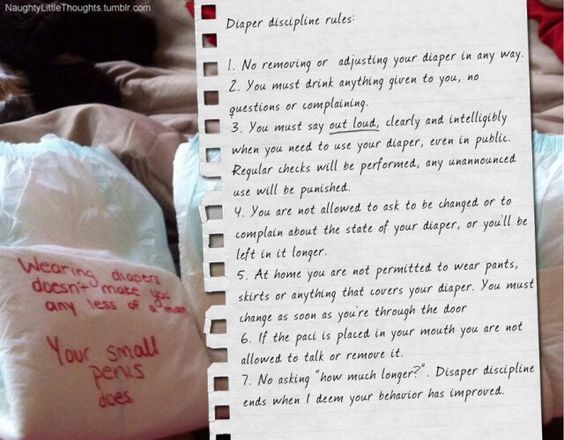 NaughtyLittleThoughts.tumblr.com
Wearing diapers
doesn't make you
any less of a man
Your small
penis
does
Diaper discipline rules:
1. No removing or adjusting your diaper in any way.
2. You must drink anything given to you, no
questions or complaining.
3. You must say out loud, clearly and intelligibly
when you need to use your diaper, even in public.
Regular checks will be performed, any unannounced
use will be punished.
4. You are not allowed to ask to be changed or to
complain about the state of your diaper, or you'll be
left in it longer.
5. At home you are not permitted to wear pants,
skirts or anything that covers your diaper. You must
change as soon as you're through the door
6. If the paci is placed in your mouth you are not
allowed to talk or remove it.
7. No asking "how much longer?". Disaper discipline
ends when I deem your behavior has improved.